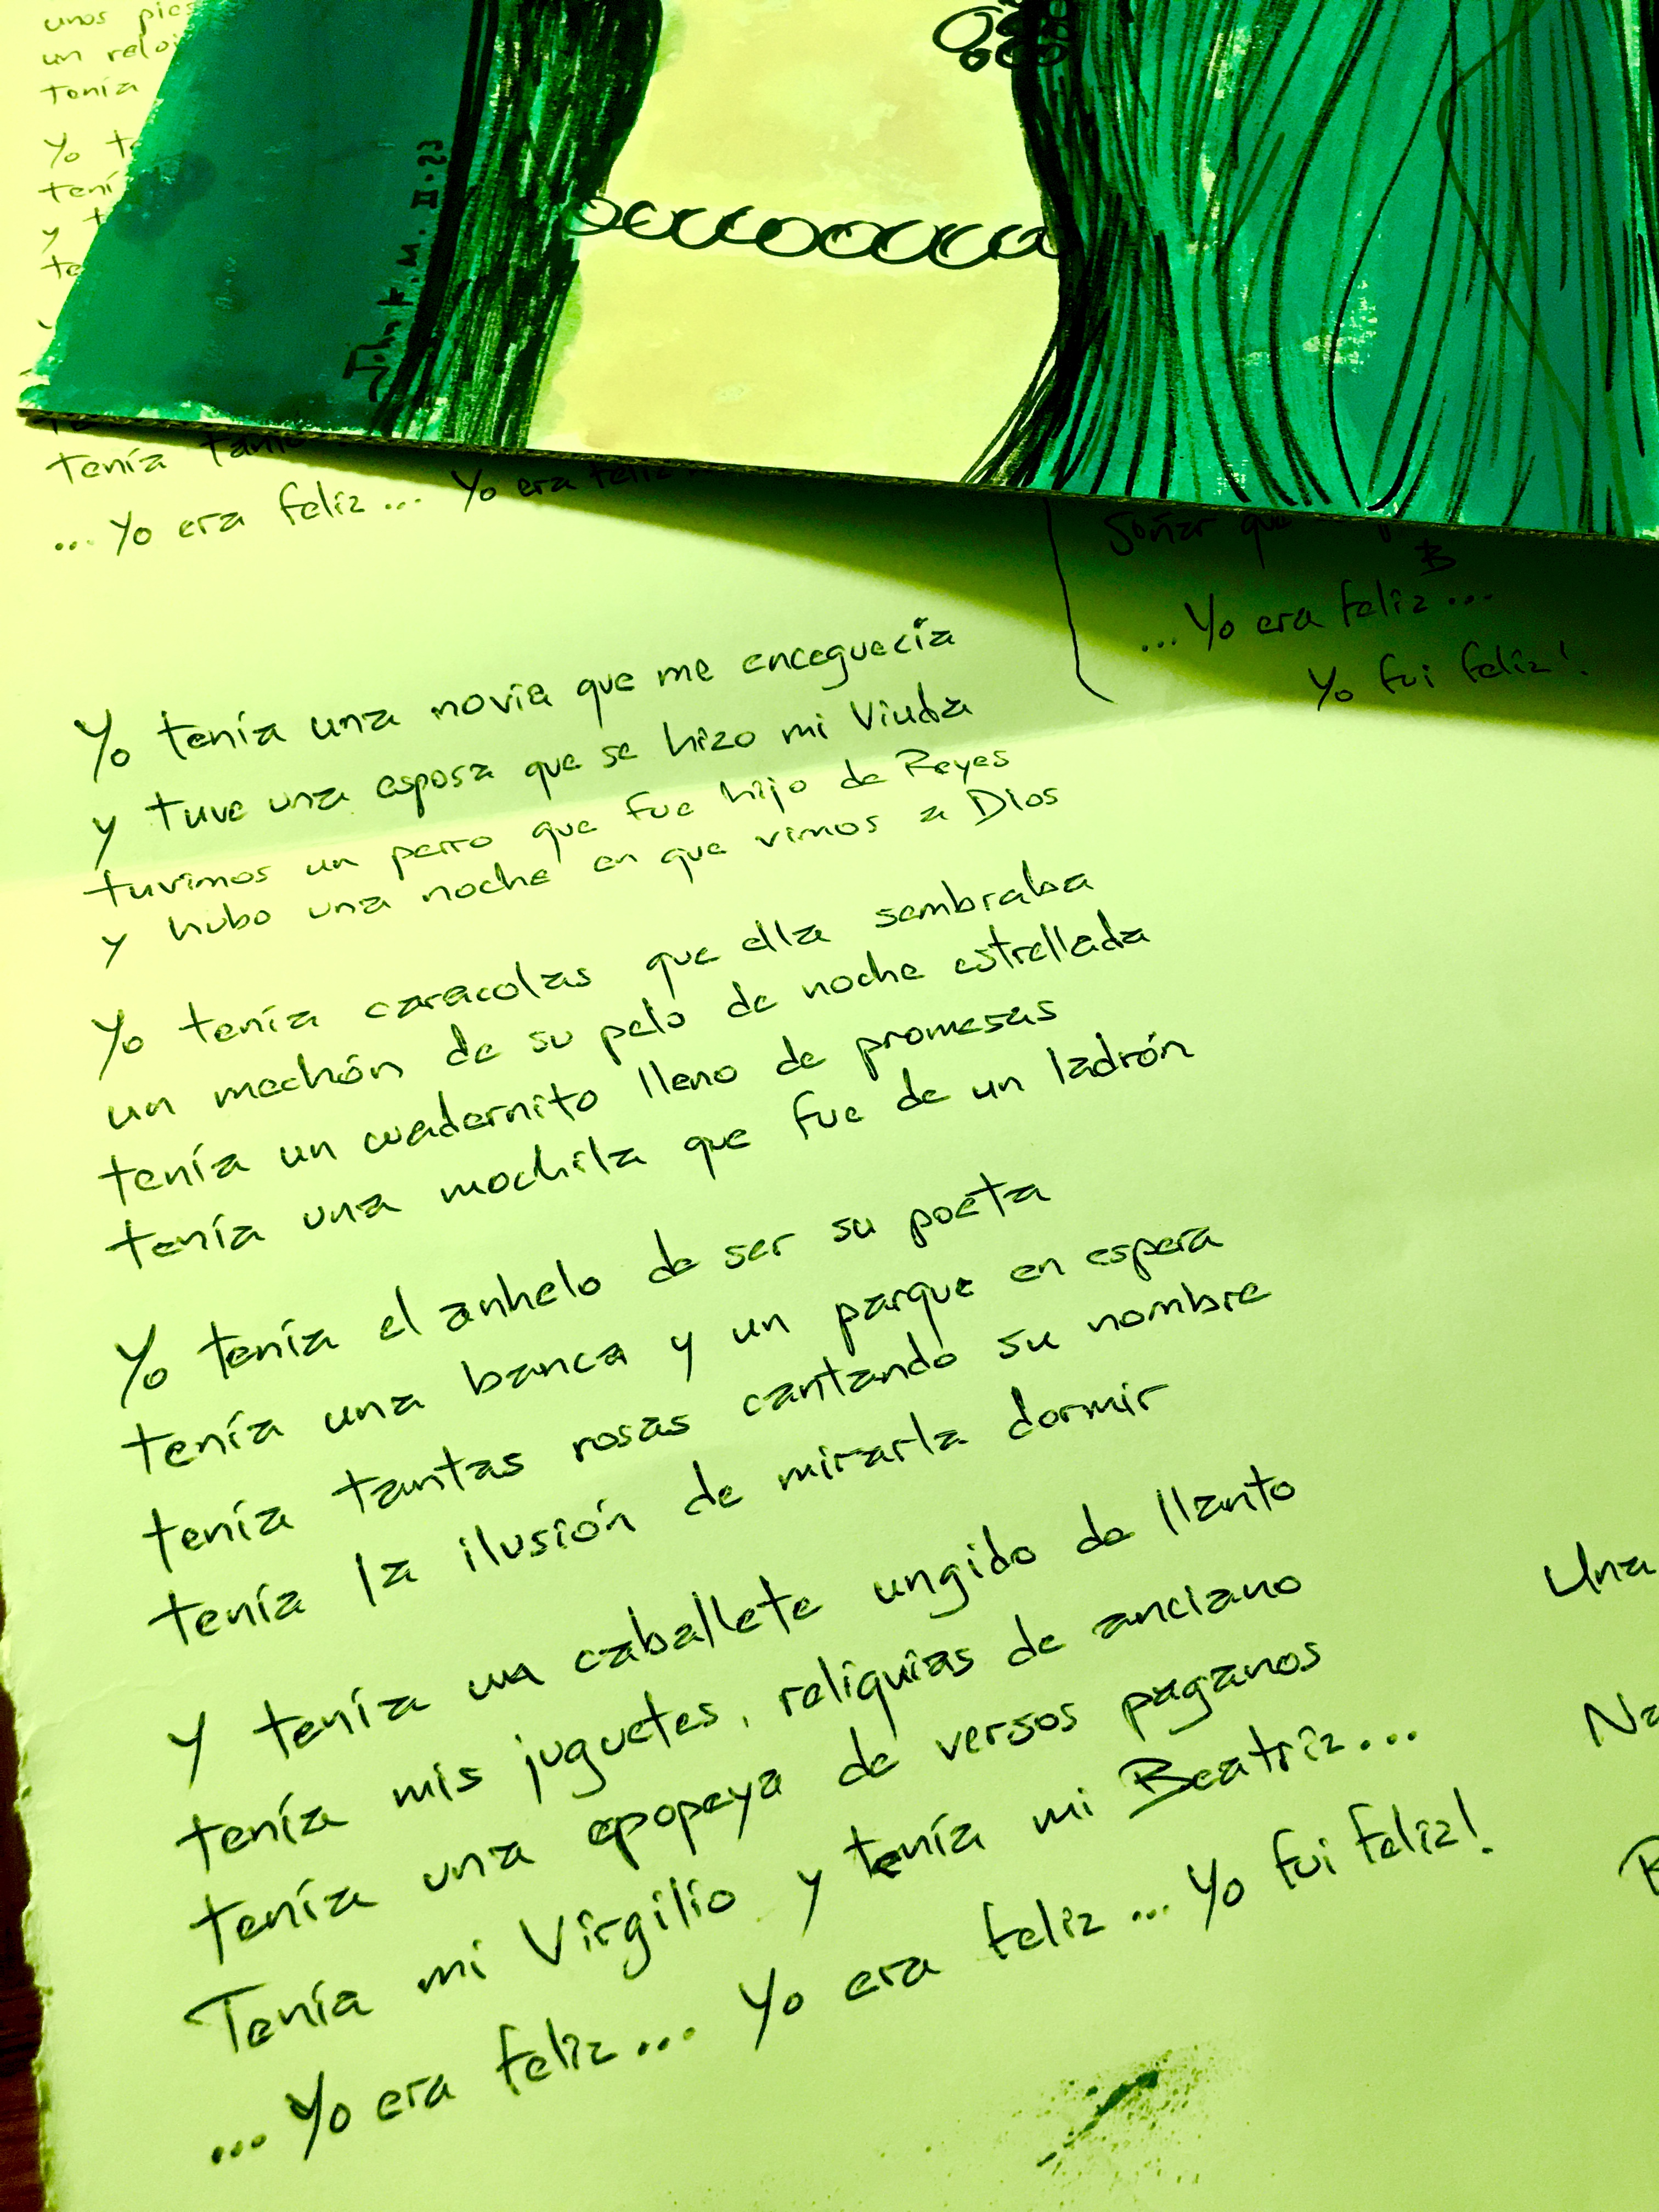 unos pies
un reloj
tenía
Yo
y
John K. M. II. 23
tenía
... Yo era feliz ... Yo era feliz
Soñar que
B
... Yo era feliz ...
Yo fui feliz!
Yo tenía una novia que me enceguecía
y tuve una esposa que se hizo mi Viuda
tuvimos un perro que fue hijo de Reyes
y hubo una noche en que vimos a Dios
Yo tenía caracolas que ella sembraba
un mechón de su pelo de noche estrellada
tenía un cuadernito lleno de promesas
tenía una mochila que fue de un ladrón
Yo tenía el anhelo de ser su poeta
tenía una banca y un parque en espera
tenía tantas rosas cantando su nombre
tenía la ilusión de mirarla dormir
Y tenía un caballete ungido de llanto
tenía mis juguetes, reliquias de anciano
tenía una epopeya de versos paganos
Tenía mi Virgilio y tenía mi Beatriz...
... Yo era feliz ... Yo era feliz ... Yo fui feliz!
Una